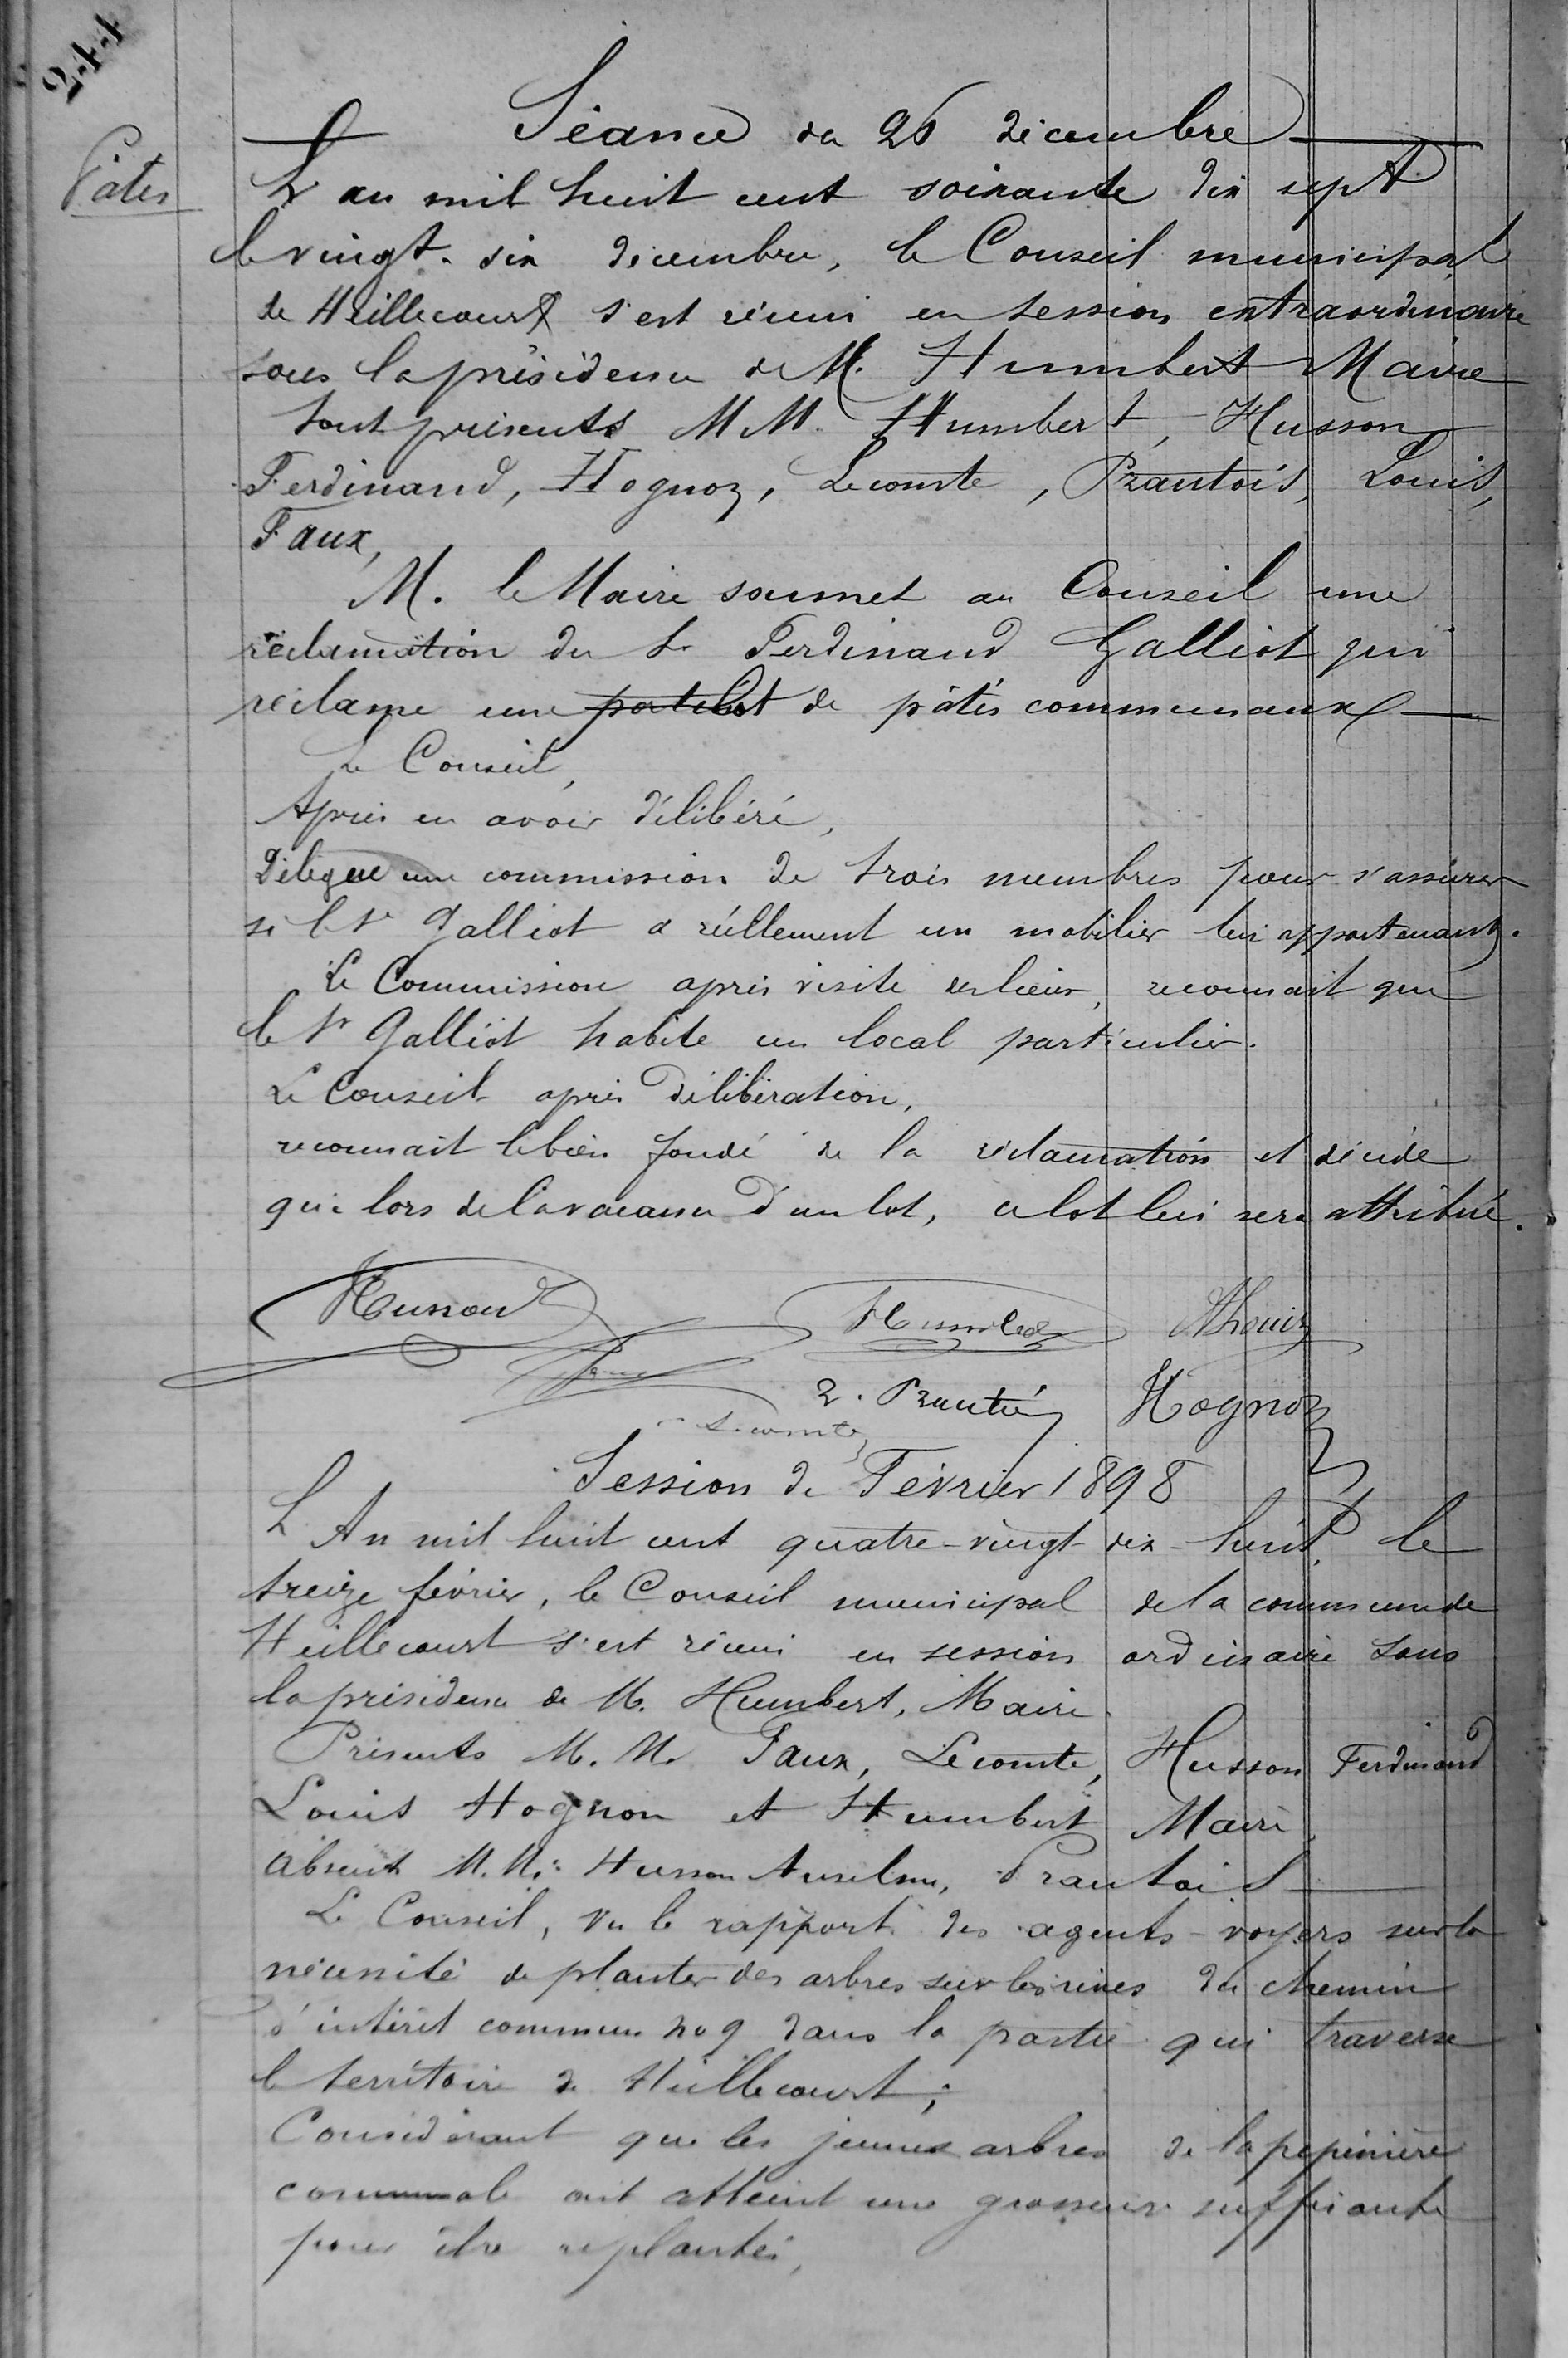 244
Séance du 26 décembre
Pâtis
L'an mil huit cent soixante dix sept
le vingt-six décembre, le Conseil municipal
de Heillecourt s'est réuni en session extraordinaire
sous la présidence de M. Humbert Maire
Sont présents MM. Humbert, Husson
Ferdinand, Hognon, Lecomte, Prantois, Louis,
Faux,
M. le Maire soumet au Conseil une
réclamation du Sr Ferdinand Galliot qui
réclame une de pâtis communaux
Le Conseil,
Après en avoir délibéré,
Délègue une commission de trois membres pour s'assurer
si le Sr Galliot a réellement un mobilier lui appartenant.
La Commission après visite des lieux, reconnait que
le Sr Galliot habite un local particulier.
Le Conseil après délibération,
reconnait le bien fondé de la réclamation et décide
que lors de la vacance d'un lot, ce lot lui sera attribué.
Husson Humbert Louis
Faux
Prantois Hognon
Lecomte
Session de Février 1898
L'An mil huit cent quatre-vingt-dix-huit, le
treize février, le Conseil municipal de la commune de
Heillecourt s'est réuni en session ordinaire sous
la présidence de M. Humbert, Maire.
Présents M.M. Faux, Lecomte, Husson Ferdinand
Louis Hognon et Humbert Maire.
Absents M.M. Husson Anselme, Prantois
Le Conseil, Vu le rapport des agents-voyers sur la
nécessité de planter des arbres sur les rives du chemin
d'intérêt commun no 9 dans la partie qui traverse
le territoire de Heillecourt;
Considérant que les jeunes arbres de la pépinière
communale ont atteint une grosseur suffisante
pour être replantés,